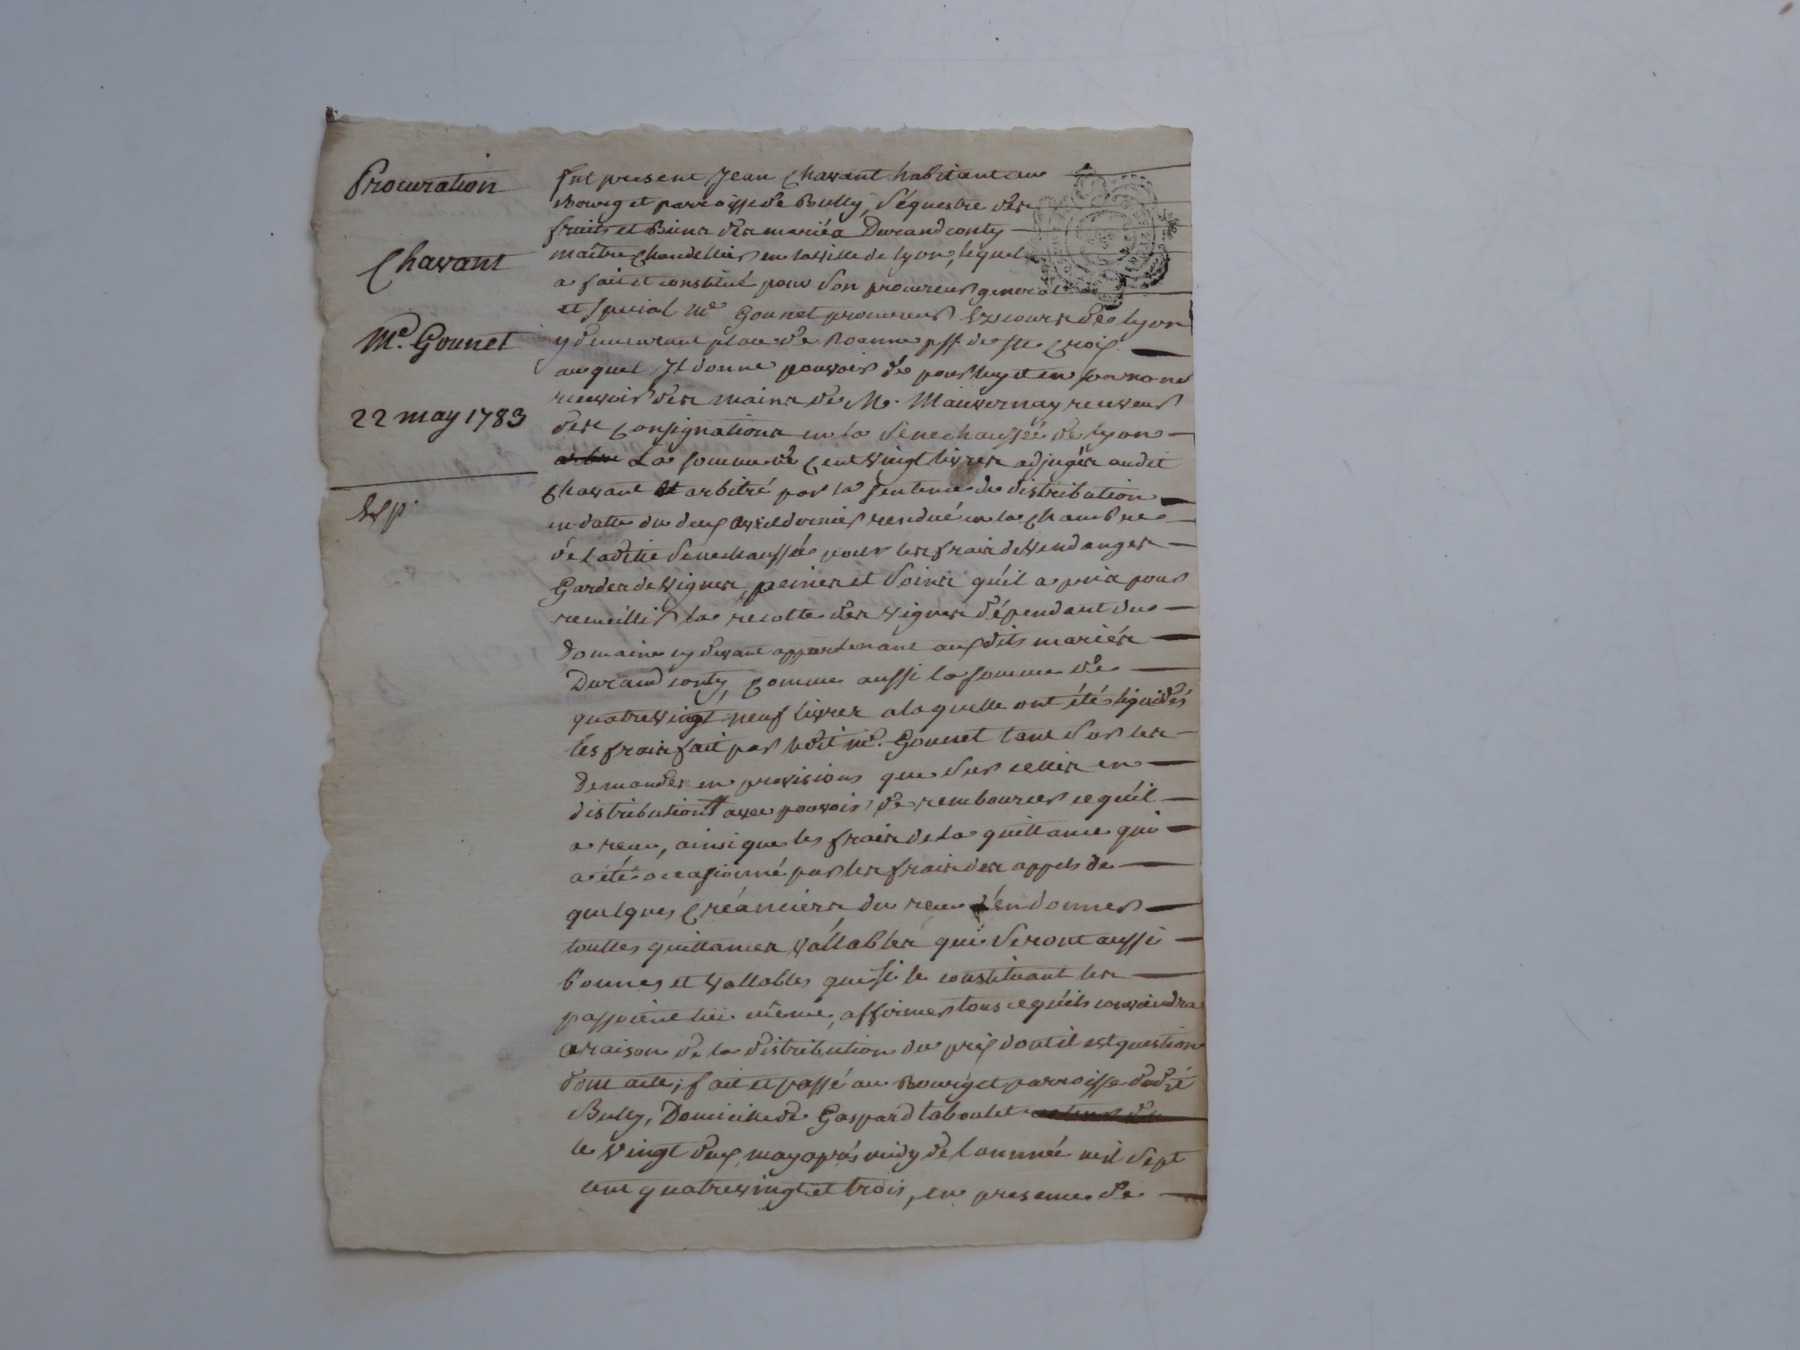 Procuration
Chavant
Me. Gounet
22 may 1783
Exp.
fut present Jean Chavant habitant au
Bourg et parroisse de Bully, Séquestre des
fruits et Biens des mariés Durand conty
maître Chandellier en la ville de Lyon, lequel
a fait et constitué pour Son procureur general
et Special Me Gounet procureur Ez cours de Lyon
y demeurant place de Roanne psse de Ste Croix
auquel Il donne pouvoir de pour luy et en son nom
recevoir des mains de M. Mauvernay receveur
des Consignations en la Senechaussée de Lyon
La somme de Cent vingt livres adjugés audit
Chavant et arbitré par la Sentence de distribution
en datte du deux avril dernier rendue en la Chambre
de Laditte Senechaussée pour les frais de Vendanges
Gardes de Vignes, peines et Soins qu'il a pris pour
recueillir la recolte des vignes dépendant du
domaine cy devant appartenant auxdits mariés
Durand conty, Comme aussi la somme de
quatre vingt neuf livres a laquelle ont étés liquidés
les frais fait par ledit me. Gounet tant Sur les
demandes en provisions que Sur celles en
distribution avec pouvoir de rembourcer ce qu'il
a recu, ainsi que les frais de La quittance qui
a été occasionné par les frais des appels de
quelques Créanciers du recu d'en donner
touttes quittances vallables qui Seront aussi
bonnes et vallables que Si le constituant les
passoient lui même, affirmer tous ce qu'ils conviendra
a raison de la distribution du prix dont il est question
dont acte, fait et passé au Bourg et parroisse dudit
Bully, Domicille de Gaspard taboulet
le vingt deux may après midy de L'année mil Sept
cent quatre vingt et trois, en presence de